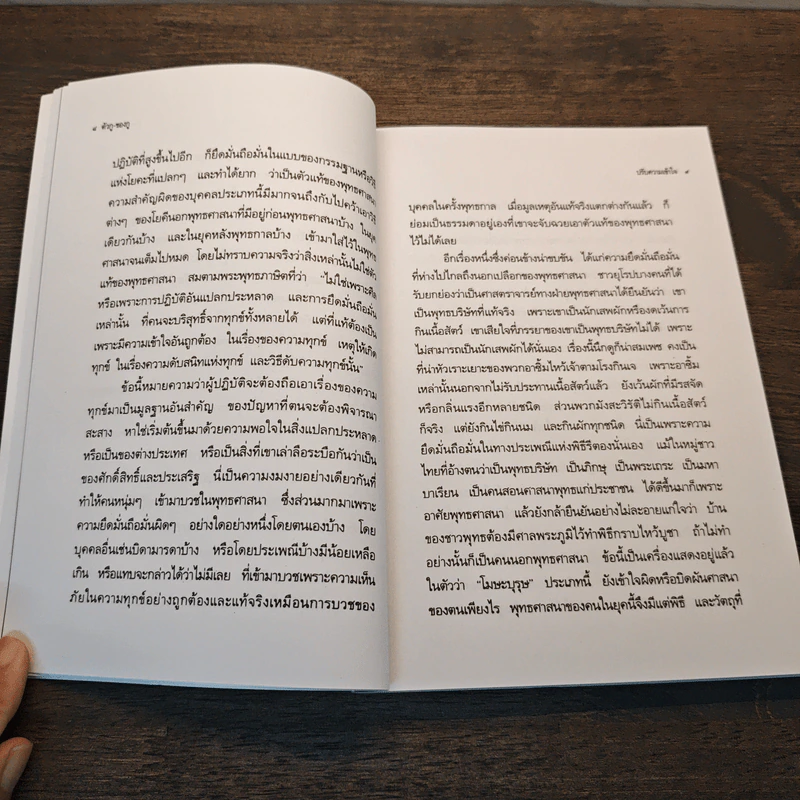 ๘ ตัวกู-ของกู
ปฏิบัติที่สูงขึ้นไปอีก ก็ยึดมั่นถือมั่นในแบบของกรรมฐานหรือวิธี
แห่งโยคะที่แปลกๆ และทำได้ยาก ว่าเป็นตัวแท้ของพุทธศาสนา
ความสำคัญผิดของบุคคลประเภทนี้มีมากจนถึงกับไปคว้าเอาวิธี
ต่างๆ ของโยคีนอกพุทธศาสนาที่มีอยู่ก่อนพุทธศาสนาบ้าง ในยุค
เดียวกันบ้าง และในยุคหลังพุทธกาลบ้าง เข้ามาใส่ไว้ในพุทธ
ศาสนาจนเต็มไปหมด โดยไม่ทราบความจริงว่าสิ่งเหล่านั้นไม่ใช่ตัว
แท้ของพุทธศาสนา สมตามพระพุทธภาษิตที่ว่า "ไม่ใช่เพราะศีล
หรือเพราะการปฏิบัติอันแปลกประหลาด และการยึดมั่นถือมั่น
เหล่านั้น ที่คนจะบริสุทธิ์จากทุกข์ทั้งหลายได้ แต่ที่แท้ต้องเป็น
เพราะมีความเข้าใจอันถูกต้อง ในเรื่องของความทุกข์ เหตุให้เกิด
ทุกข์ ในเรื่องความดับสนิทแห่งทุกข์ และวิธีดับความทุกข์นั้น"
ข้อนี้หมายความว่าผู้ปฏิบัติจะต้องถือเอาเรื่องของความ
ทุกข์มาเป็นมูลฐานอันสำคัญ ของปัญหาที่ตนจะต้องพิจารณา
สะสาง หาใช่เริ่มต้นขึ้นมาด้วยความพอใจในสิ่งแปลกประหลาด
หรือเป็นของต่างประเทศ หรือเป็นสิ่งที่เขาเล่าลือระบือกันว่าเป็น
ของศักดิ์สิทธิ์และประเสริฐ นี่เป็นความงมงายอย่างเดียวกันที่
ทำให้คนหนุ่มๆ เข้ามาบวชในพุทธศาสนา ซึ่งส่วนมากมาเพราะ
ความยึดมั่นถือมั่นผิดๆ อย่างใดอย่างหนึ่งโดยตนเองบ้าง โดย
บุคคลอื่นเช่นบิดามารดาบ้าง หรือโดยประเพณีบ้างมีน้อยเหลือ
เกิน หรือแทบจะกล่าวได้ว่าไม่มีเลย ที่เข้ามาบวชเพราะความเห็น
ภัยในความทุกข์อย่างถูกต้องและแท้จริงเหมือนการบวชของ
ปรับความเข้าใจ ๙
บุคคลในครั้งพุทธกาล เมื่อมูลเหตุอันแท้จริงแตกต่างกันแล้ว ก็
ย่อมเป็นธรรมดาอยู่เองที่เขาจะจับฉวยเอาตัวแท้ของพุทธศาสนา
ไว้ไม่ได้เลย
อีกเรื่องหนึ่งซึ่งค่อนข้างน่าขบขัน ได้แก่ความยึดมั่นถือมั่น
ที่ห่างไปไกลถึงนอกเปลือกของพุทธศาสนา ชาวยุโรปบางคนที่ได้
รับยกย่องว่าเป็นศาสตราจารย์ทางฝ่ายพุทธศาสนาได้ยืนยันว่า เขา
เป็นพุทธบริษัทที่แท้จริง เพราะเขาเป็นนักเสพผักหรืองดเว้นการ
กินเนื้อสัตว์ เขาเสียใจที่ภรรยาของเขาเป็นพุทธบริษัทไม่ได้ เพราะ
ไม่สามารถเป็นนักเสพผักได้นั่นเอง เรื่องนี้นึกดูก็น่าสมเพช คงเป็น
ที่น่าหัวเราะเยาะของพวกอาซิ้มไหว้เจ้าตามโรงกินเจ เพราะอาซิ้ม
เหล่านั้นนอกจากไม่รับประทานเนื้อสัตว์แล้ว ยังเว้นผักที่มีรสจัด
หรือกลิ่นแรงอีกหลายชนิด ส่วนพวกมังสะวิรัติไม่กินเนื้อสัตว์
ก็จริง แต่ยังกินไข่กินนม และกินผักทุกชนิด นี่เป็นเพราะความ
ยึดมั่นถือมั่นในทางประเพณีแห่งพิธีรีตองนั่นเอง แม้ในหมู่ชาว
ไทยที่อ้างตนว่าเป็นพุทธบริษัท เป็นภิกษุ เป็นพระเถระ เป็นมหา
บาเรียน เป็นคนสอนศาสนาพุทธแก่ประชาชน ได้ดีขึ้นมาก็เพราะ
อาศัยพุทธศาสนา แล้วยังกล้ายืนยันอย่างไม่ละอายแก่ใจว่า บ้าน
ของชาวพุทธต้องมีศาลพระภูมิไว้ทำพิธีกราบไหว้บูชา ถ้าไม่ทำ
อย่างนั้นก็เป็นคนนอกพุทธศาสนา ข้อนี้เป็นเครื่องแสดงอยู่แล้ว
ในตัวว่า "โมฆะบุรุษ" ประเภทนี้ ยังเข้าใจผิดหรือบิดผันศาสนา
ของตนเพียงไร พุทธศาสนาของคนในยุคนี้จึงมีแต่พิธี และวัตถุที่